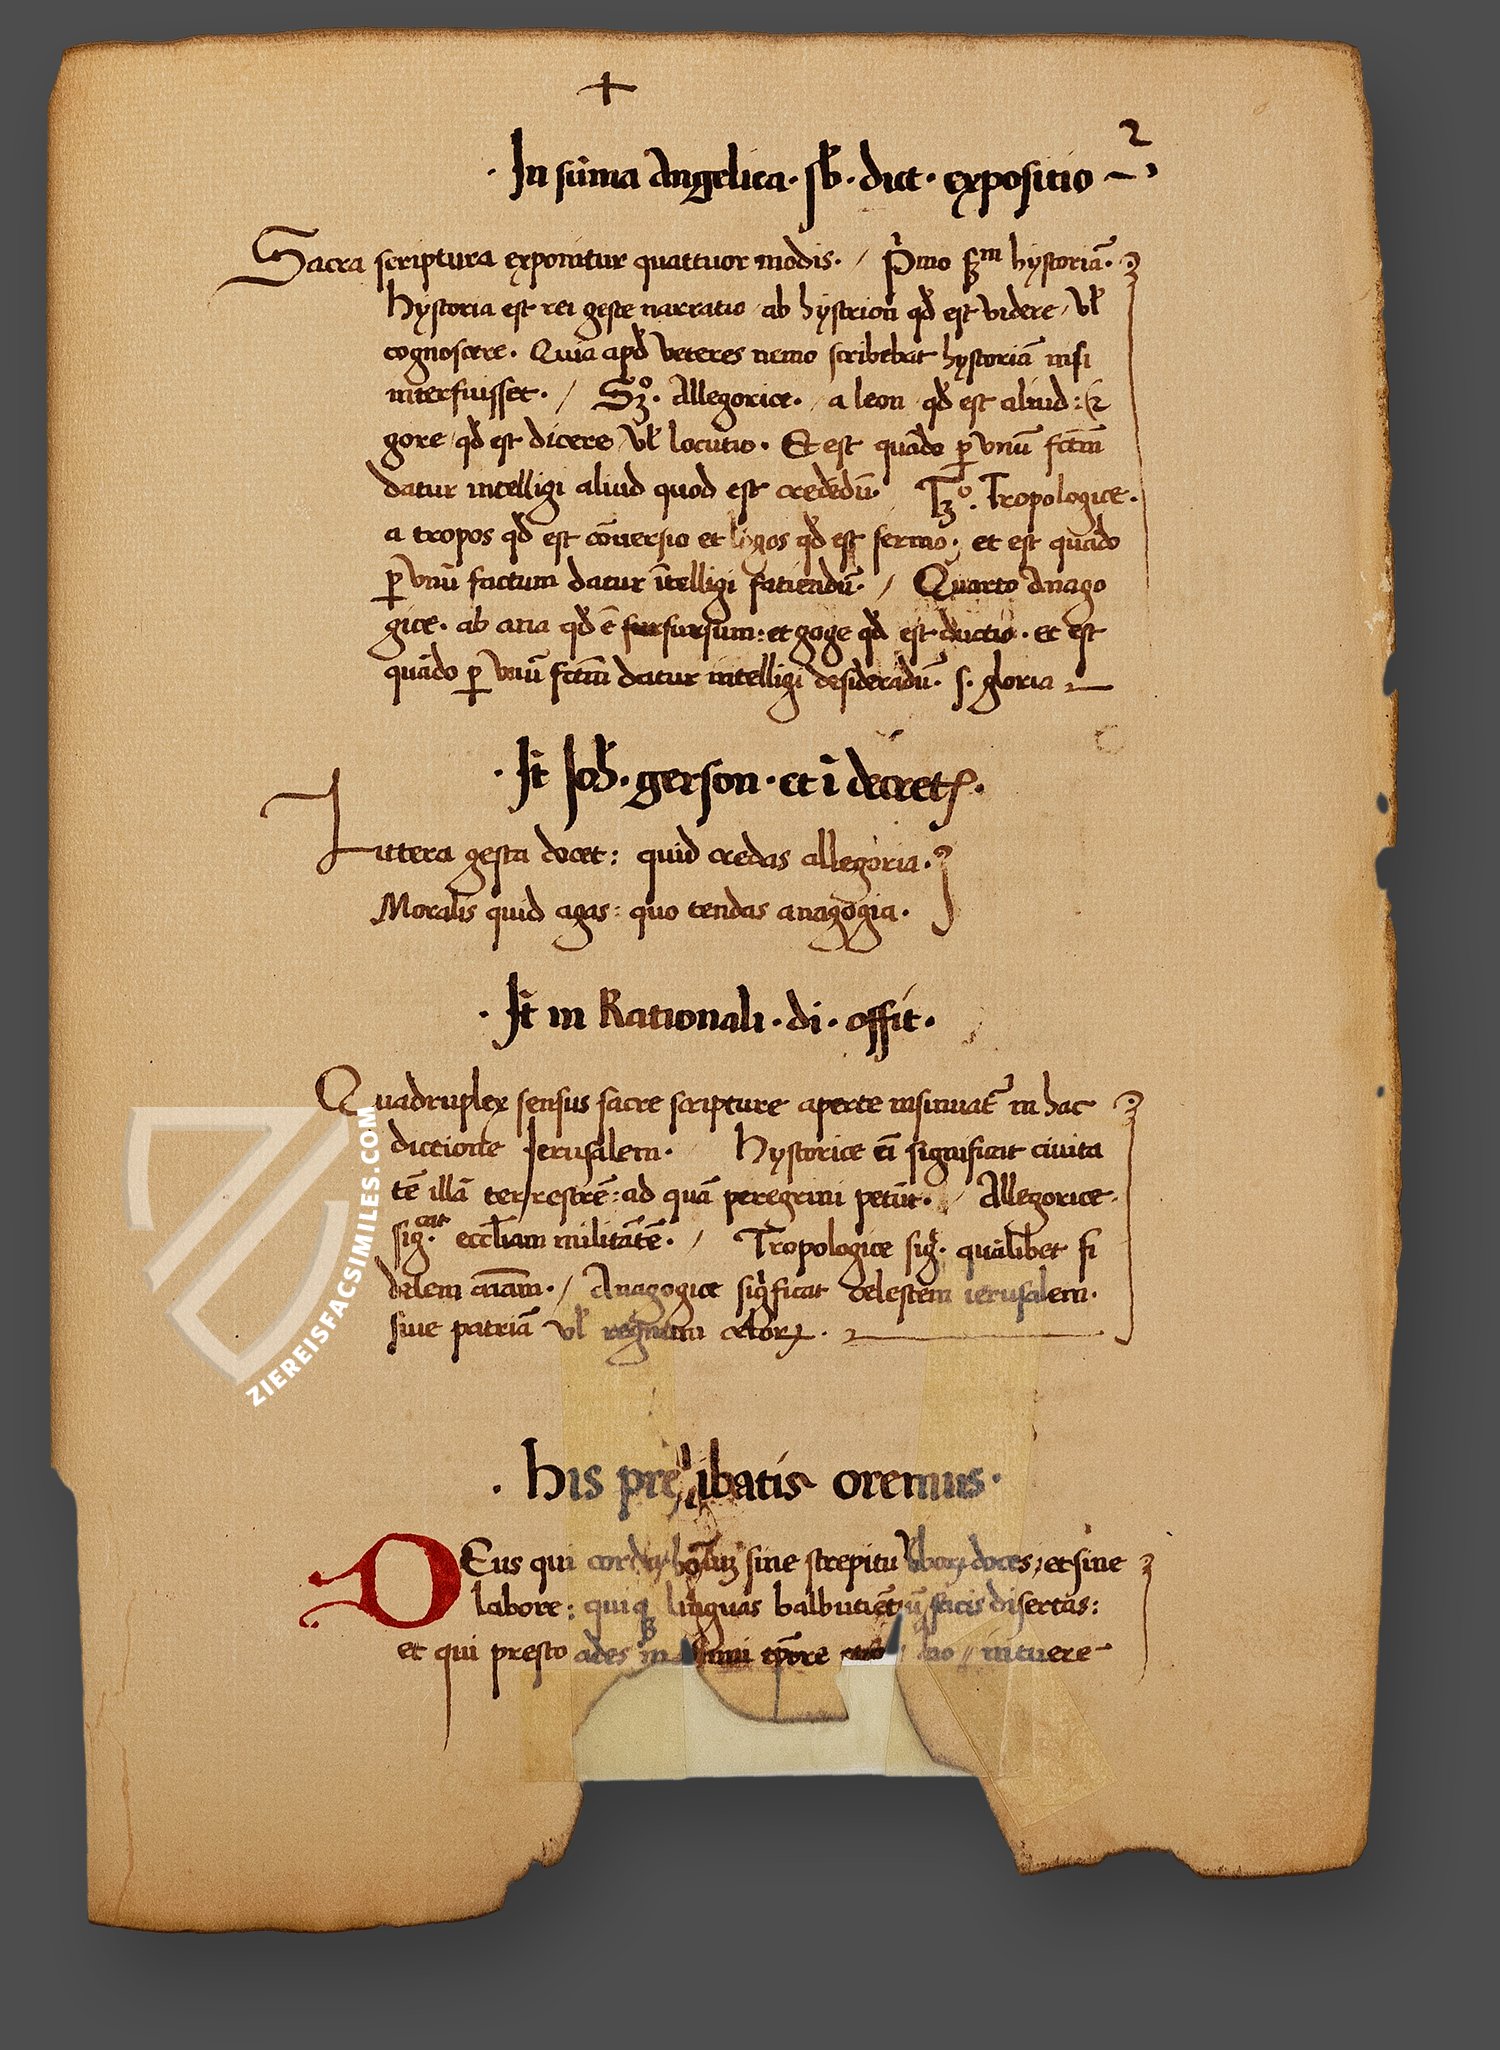 +
2
· In sūma Angelica · sƀ · dict · expositio ~
Sacra scriptura exponitur quattuor modis · / P̓mo sm hystoriā ·
hystoria est rei geste narratio ab hystrion qđ est videre / vł
cognoscere · Quia apđ veteres nemo scribebat hystoriā nisi
interfuisset · / Sꝫº · Allegorice · / a leon qđ est aliud : &
gore / qđ est dicere / vł locutio · Et est quādo ꝑ vnū fctm̄
datur intelligi aliud quod est crededū · Tꝫº · Tropologice ·
a tropos qđ est cōuersio et logos qđ est sermo · et est quādo
ꝑ vnū factum datur ītelligi fatiendū · / Quarto Anago
gice · ab ana qđ ē sursum : et goge qđ est ductio · et est
quādo ꝑ vnū fctm̄ datur intelligi desideradū · s · gloria
· It̄ Joh̄ · gerson · et ī decretꝭ ·
Littera gesta docet : quid credas allegoria ·
Moralis quid agas : quo tendas anagogia ·
· It̄ in Rationali · di · offit ·
Quadruplex sensus sacre scripture aperte insinuat᷑ in hac
dictione Jerusalem · hystorice ei̅ significat ciuita
tē illā terrestrē : ad quā peregrini petūt · / Allegorice ·
sig·cat eccl̄iam militātē · / Tropologice sig̓ · quālibet fi
delem aīam · / Anagogice sig̓ficat celestem ierusalem ·
siue patriā vł regnum celorꝝ ·
· his prelibatis oremus ·
DEus qui cordaꝫ hoīuꝫ sine strepitu v̓borꝝ doces ; et sine
labore : quiqꝫ linguas balbutiētiū facis disertas :
et qui presto ades in tp̄ore intuere
ZIEREISFACSIMILES.COM